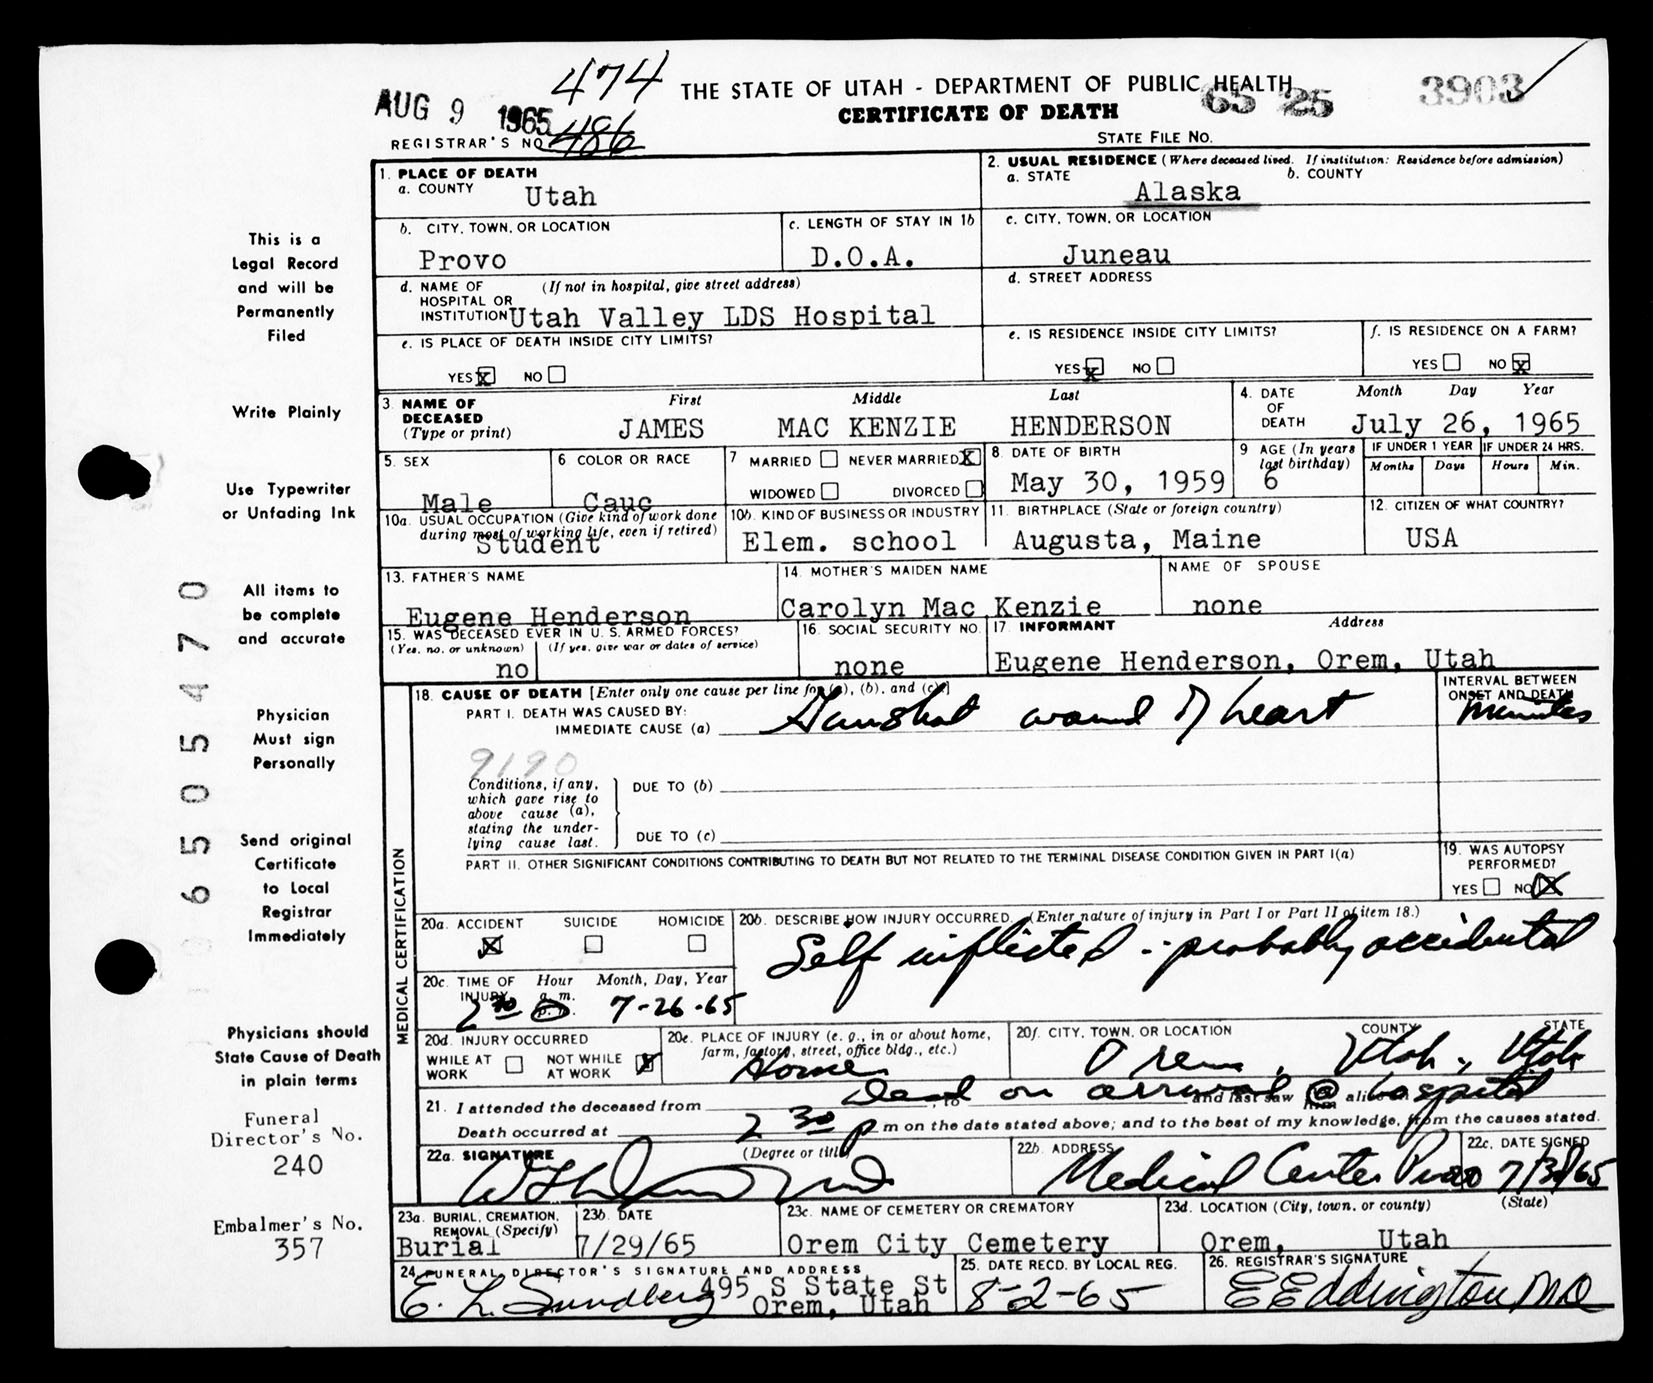 AUG 9 1965
474
THE STATE OF UTAH - DEPARTMENT OF PUBLIC HEALTH
65 25
3903
CERTIFICATE OF DEATH
REGISTRAR'S NO. 486
STATE FILE NO.
This is a
Legal Record
and will be
Permanently
Filed
Write Plainly
Use Typewriter
or Unfading Ink
All items to
be complete
and accurate
Physician
Must sign
Personally
Send original
Certificate
to Local
Registrar
Immediately
Physicians should
State Cause of Death
in plain terms
Funeral
Director's No.
240
Embalmer's No.
357
6505470
1. PLACE OF DEATH
a. COUNTY Utah
2. USUAL RESIDENCE (Where deceased lived. If institution: Residence before admission)
a. STATE Alaska b. COUNTY
b. CITY, TOWN, OR LOCATION Provo
c. LENGTH OF STAY IN 1b D.O.A.
c. CITY, TOWN, OR LOCATION Juneau
d. NAME OF HOSPITAL OR INSTITUTION (If not in hospital, give street address)
Utah Valley LDS Hospital
d. STREET ADDRESS
e. IS PLACE OF DEATH INSIDE CITY LIMITS?
YES X NO
e. IS RESIDENCE INSIDE CITY LIMITS?
YES X NO
f. IS RESIDENCE ON A FARM?
YES NO X
3. NAME OF DECEASED (Type or print)
First Middle Last
JAMES MAC KENZIE HENDERSON
4. DATE OF DEATH Month Day Year
July 26, 1965
5. SEX Male
6 COLOR OR RACE Cauc
7 MARRIED NEVER MARRIED X
WIDOWED DIVORCED
8. DATE OF BIRTH May 30, 1959
9 AGE (In years last birthday) 6
IF UNDER 1 YEAR Months Days
IF UNDER 24 HRS. Hours Min.
10a. USUAL OCCUPATION (Give kind of work done during most of working life, even if retired)
Student
10b. KIND OF BUSINESS OR INDUSTRY Elem. school
11. BIRTHPLACE (State or foreign country) Augusta, Maine
12. CITIZEN OF WHAT COUNTRY? USA
13. FATHER'S NAME Eugene Henderson
14. MOTHER'S MAIDEN NAME Carolyn Mac Kenzie
NAME OF SPOUSE none
15. WAS DECEASED EVER IN U. S. ARMED FORCES?
(Yes, no, or unknown) (If yes, give war or dates of service)
no
16. SOCIAL SECURITY NO. none
17. INFORMANT Address
Eugene Henderson, Orem, Utah
MEDICAL CERTIFICATION
18. CAUSE OF DEATH [Enter only one cause per line for (a), (b), and (c)]
INTERVAL BETWEEN ONSET AND DEATH
PART I. DEATH WAS CAUSED BY:
IMMEDIATE CAUSE (a) Gunshot wound of heart minutes
9190
Conditions, if any, which gave rise to above cause (a), stating the underlying cause last.
DUE TO (b)
DUE TO (c)
PART II. OTHER SIGNIFICANT CONDITIONS CONTRIBUTING TO DEATH BUT NOT RELATED TO THE TERMINAL DISEASE CONDITION GIVEN IN PART I(a)
19. WAS AUTOPSY PERFORMED?
YES NO X
20a. ACCIDENT SUICIDE HOMICIDE
X
20b. DESCRIBE HOW INJURY OCCURRED. (Enter nature of injury in Part I or Part II of item 18.)
Self inflicted - probably accidental
20c. TIME OF INJURY Hour Month, Day, Year
2 30 a. m. p. m. 7-26-65
20d. INJURY OCCURRED
WHILE AT WORK NOT WHILE AT WORK X
20e. PLACE OF INJURY (e. g., in or about home, farm, factory, street, office bldg., etc.)
Home
20f. CITY, TOWN, OR LOCATION COUNTY STATE
Orem, Utah, Utah
21. I attended the deceased from , to and last saw him alive on
Dead on arrival @ hospital
Death occurred at 2 30 p m on the date stated above; and to the best of my knowledge, from the causes stated.
22a. SIGNATURE (Degree or title)
22b. ADDRESS Medical Center Provo
22c. DATE SIGNED 7/30/65
23a. BURIAL, CREMATION, REMOVAL (Specify) Burial
23b. DATE 7/29/65
23c. NAME OF CEMETERY OR CREMATORY Orem City Cemetery
23d. LOCATION (City, town, or county) (State)
Orem, Utah
24. FUNERAL DIRECTOR'S SIGNATURE AND ADDRESS
E. L. Sundberg 495 S State St
Orem, Utah
25. DATE RECD. BY LOCAL REG. 8-2-65
26. REGISTRAR'S SIGNATURE
E E Eddington, M D